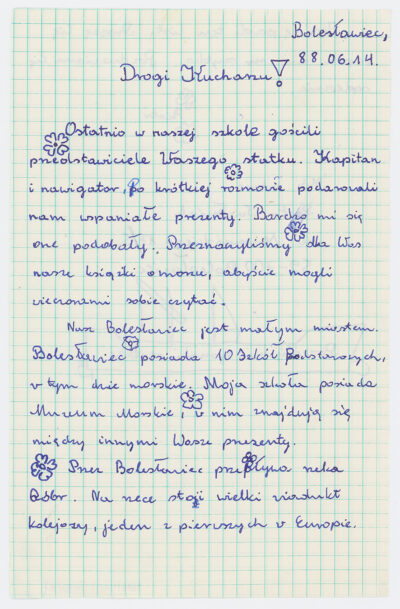 Bolesławiec,
88.06.14.
Drogi Kucharzu!
Ostatnio w naszej szkole gościli
przedstawiciele Waszego statku. Kapitan
i nawigator, po krótkiej rozmowie podarowali
nam wspaniałe prezenty. Bardzo mi się
one podobały. Przeznaczyliśmy dla Was
nasze książki o morzu, abyście mogli
wieczorami sobie czytać.
Nasz Bolesławiec jest małym miastem.
Bolesławiec posiada 10 Szkół Podstawowych,
w tym dwie morskie. Moja szkoła posiada
Muzeum Morskie, w nim znajdują się
między innymi Wasze prezenty.
Przez Bolesławiec przepływa rzeka
Bóbr. Na rzece stoji wielki wiadukt
kolejowy, jeden z pierwszych w Europie.